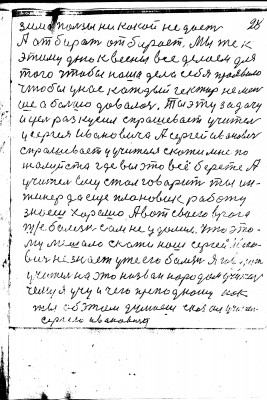 28
зима пользы ни какой не дает
А отбирать отбирает. Мы же к
этому дню к весны все делаем для
того чтобы наша дела себя проявило
чтобы у нас каждый гектар не мень
ше а больше довался. Ты эту задачу
и цел разкусил спрашевает учител
у сергея Ивановича А сергей иванович
спрашевает у учителя скажи мне по
жалуйста где вы это всё берете А
учител ему стал говарить ты ин-
женер да еще плановик работу
знаеш харашо А вот сваего врага
же болезн сам не удалил. Что это-
му мешало скажи наш сергей ивано
вич не знает уже его балезн Я
учител на это назван народом
чему я учу и чего преподношу как
ты об этом думаеш сказал учител
сергею ивановичу